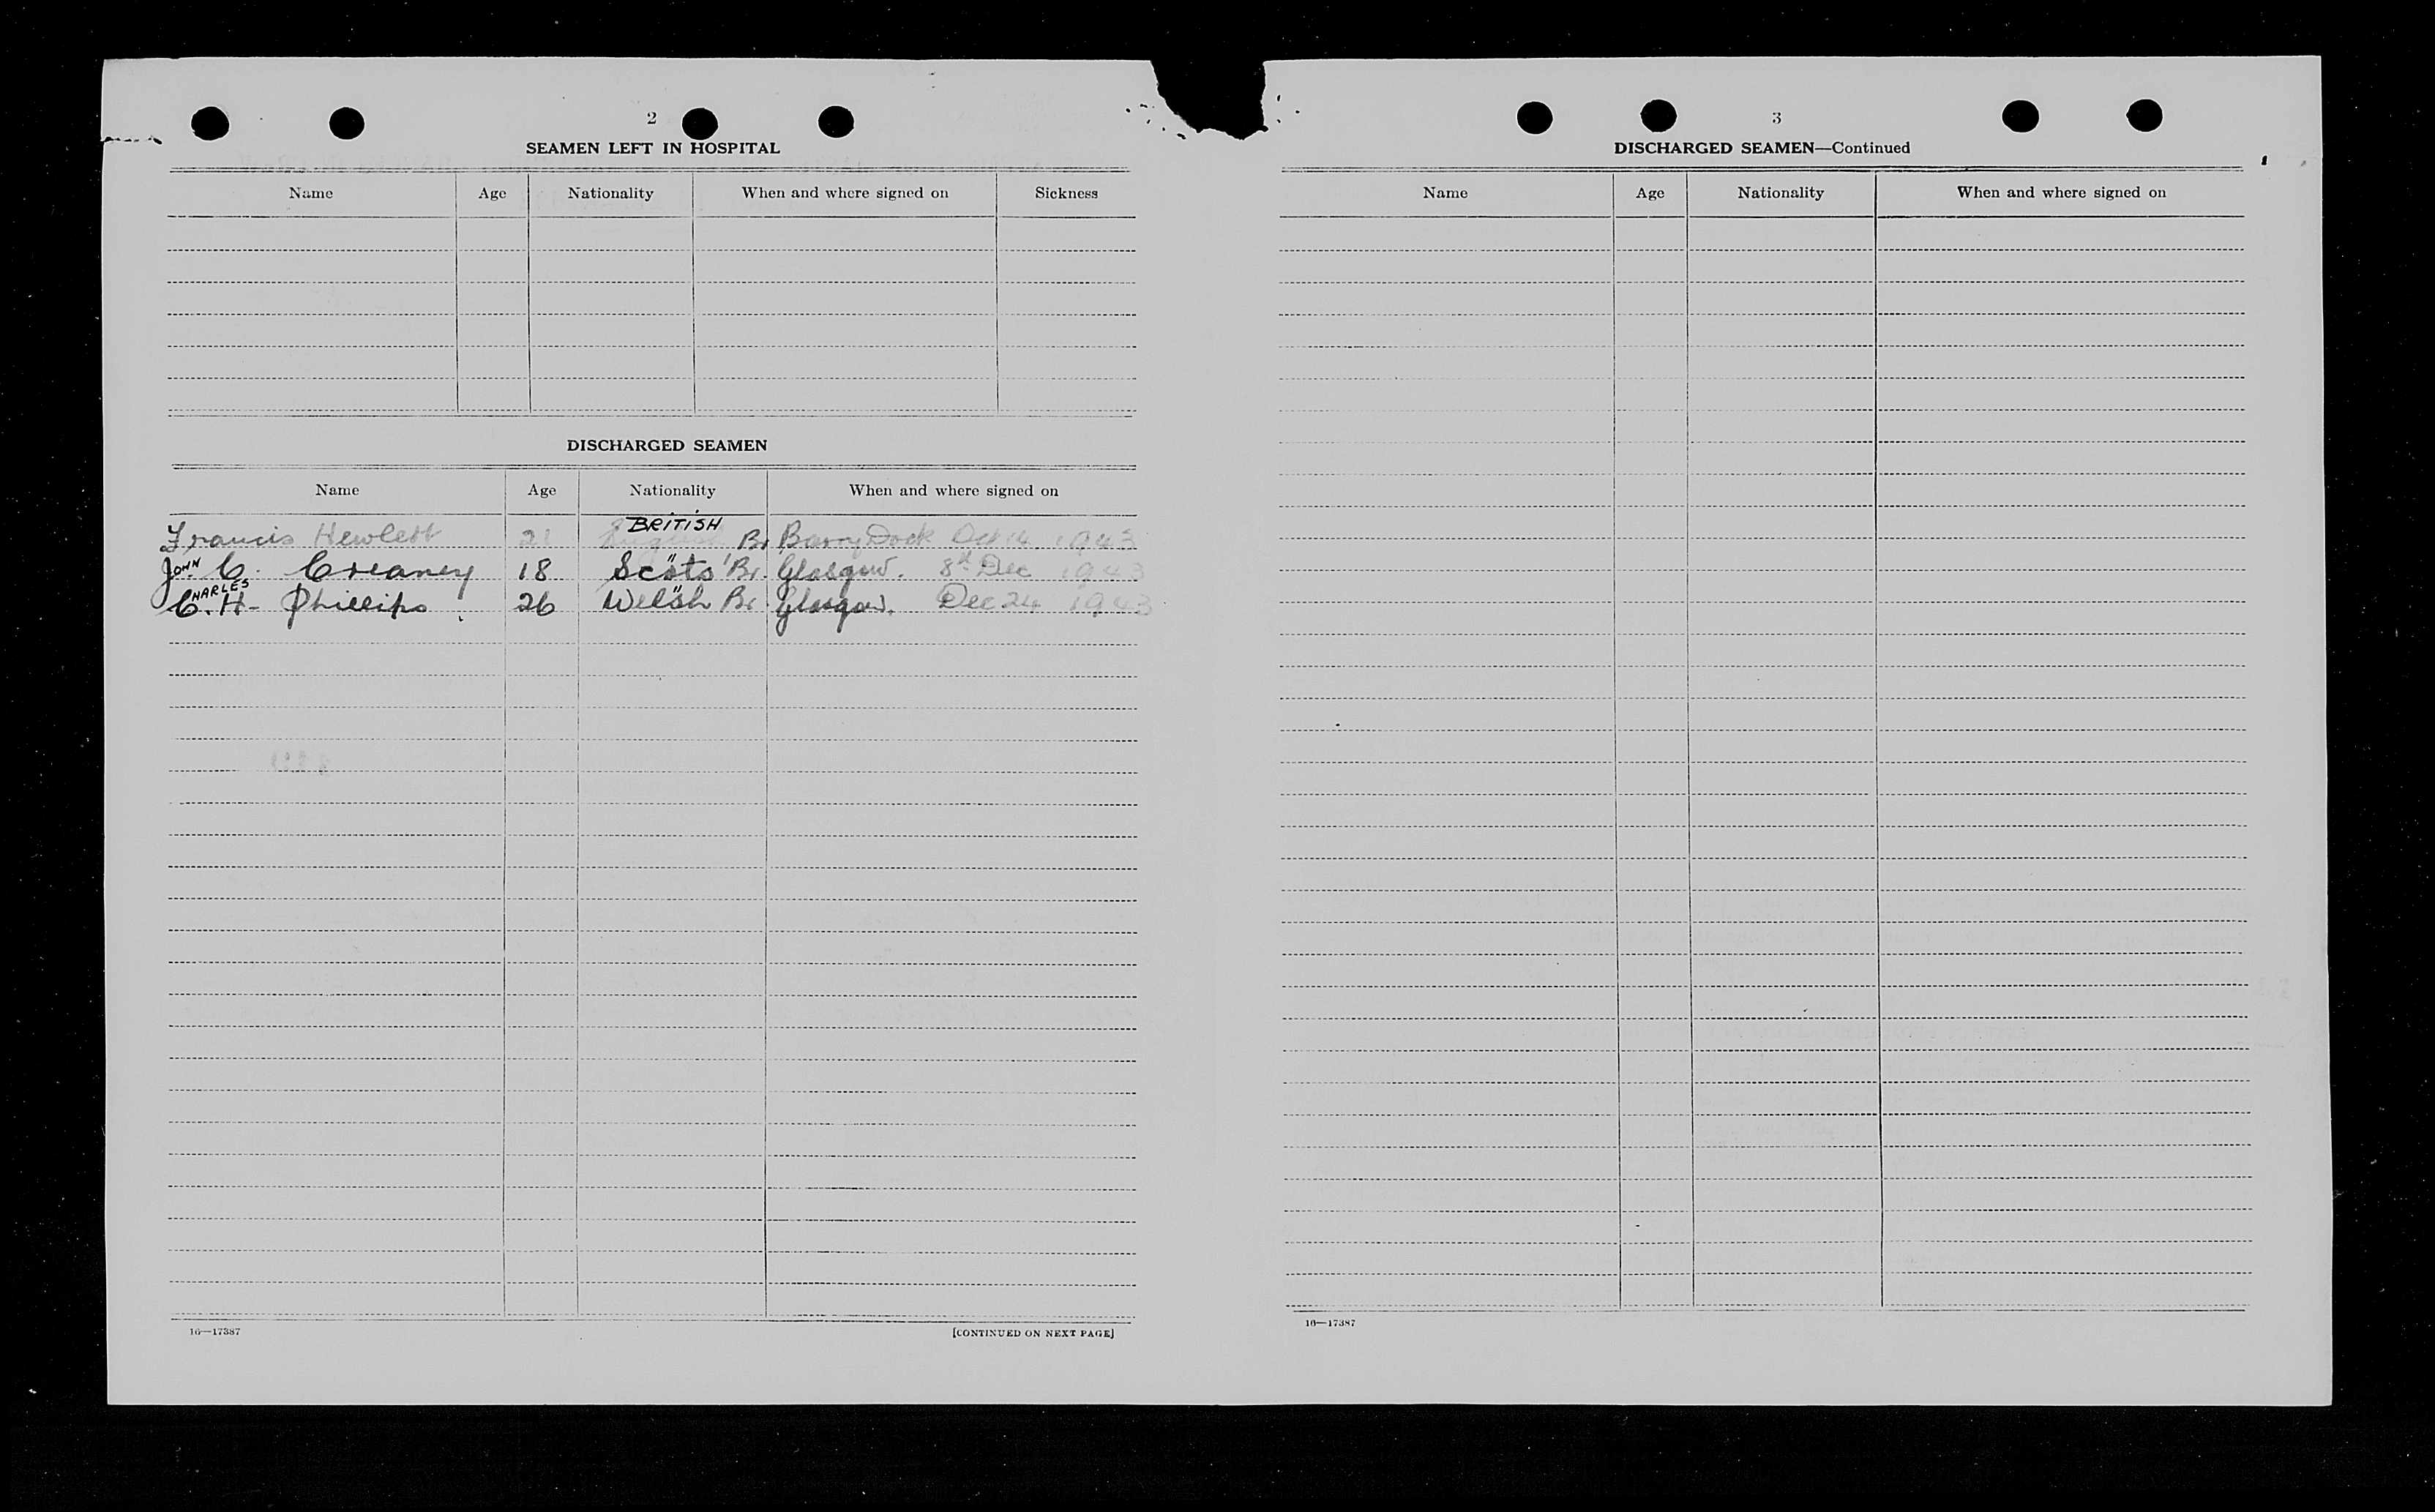 2
SEAMEN LEFT IN HOSPITAL
Name Age Nationality When and where signed on Sickness
DISCHARGED SEAMEN
Name Age Nationality When and where signed on
BRITISH
Francis Hewlett 21 English Br Barry Dock Oct 14 1943
JOHN C. Creaney 18 Scots " Br. Glasgow. 8th Dec 1943
CHARLES
C. H. Phillips 26 Welsh " Br. Glasgow. Dec 24 1943
16—17387
[CONTINUED ON NEXT PAGE]
3
DISCHARGED SEAMEN—Continued
Name Age Nationality When and where signed on
16—17387